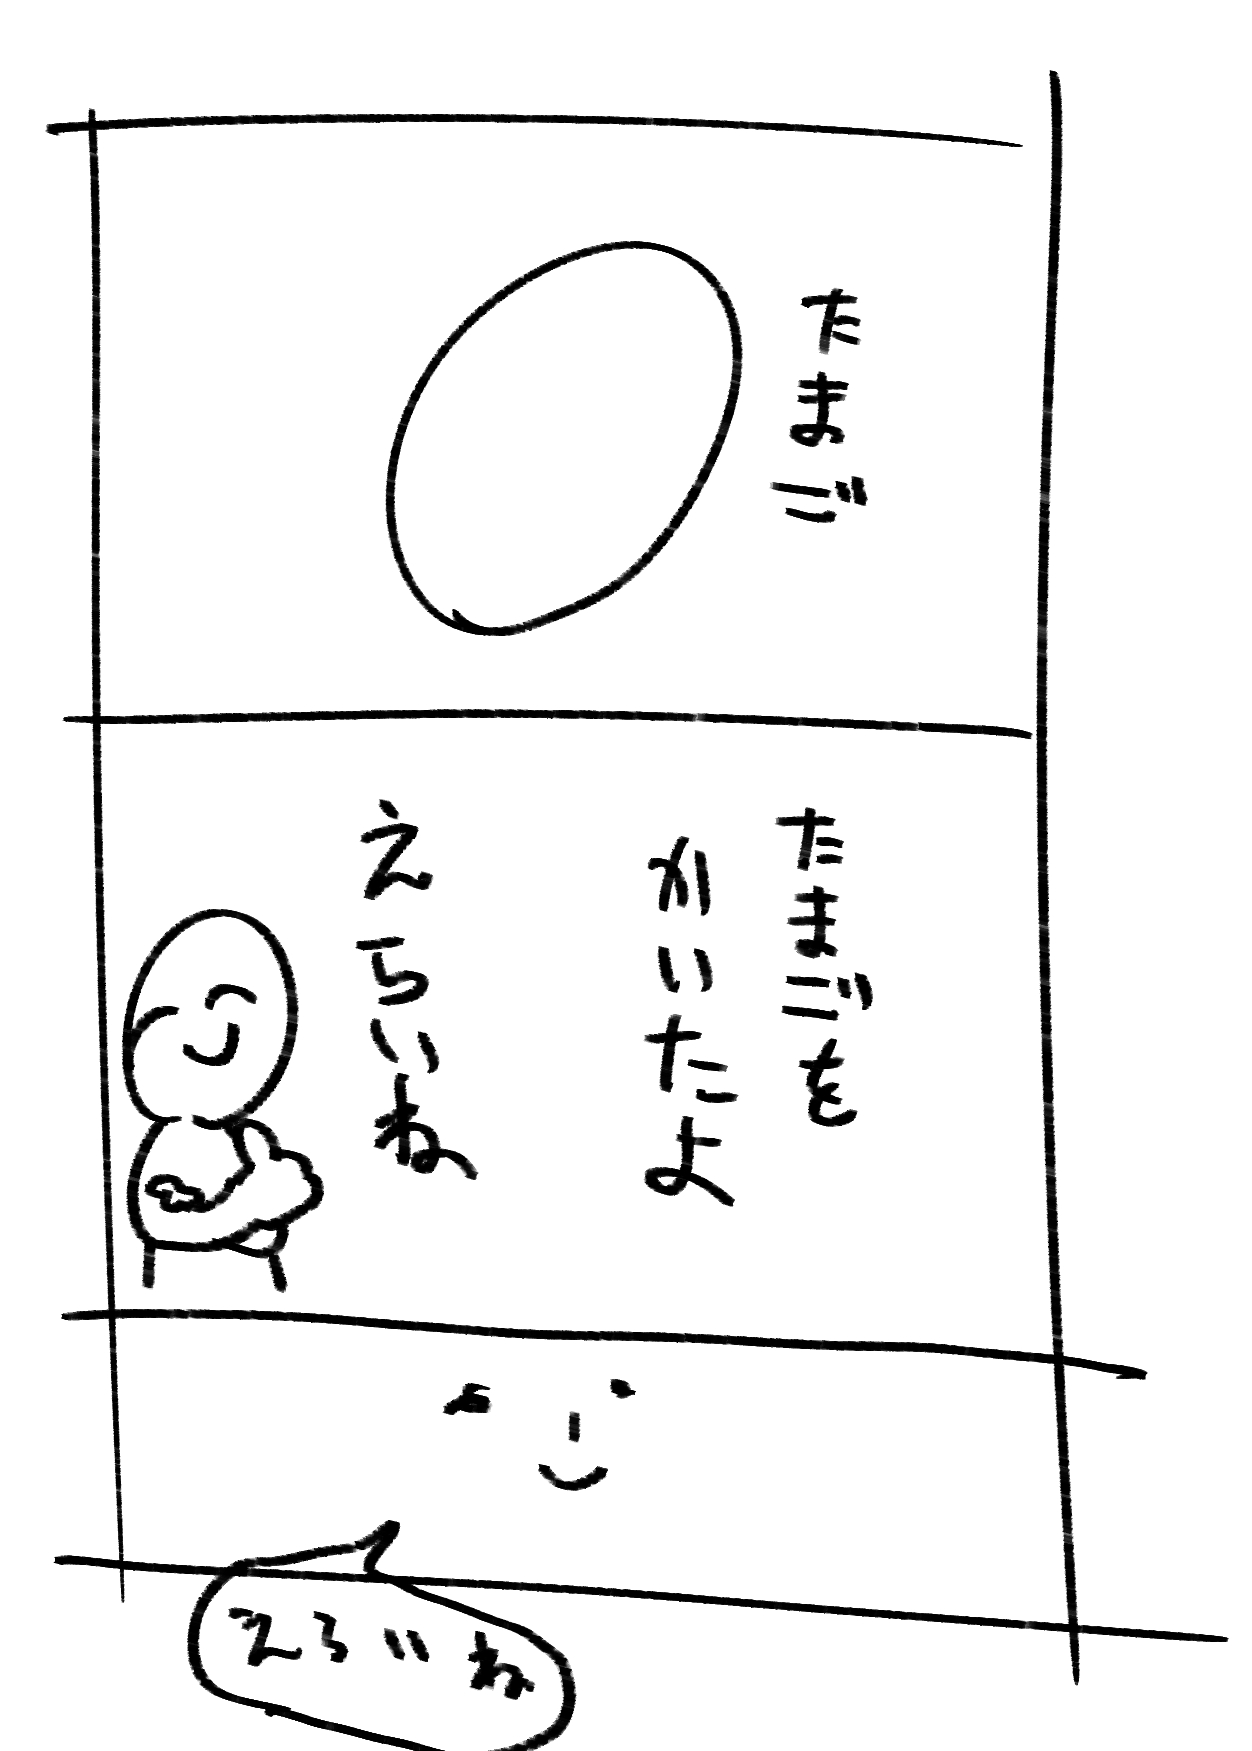 たまご
たまごを
かいたよ
えらいね
えらいね